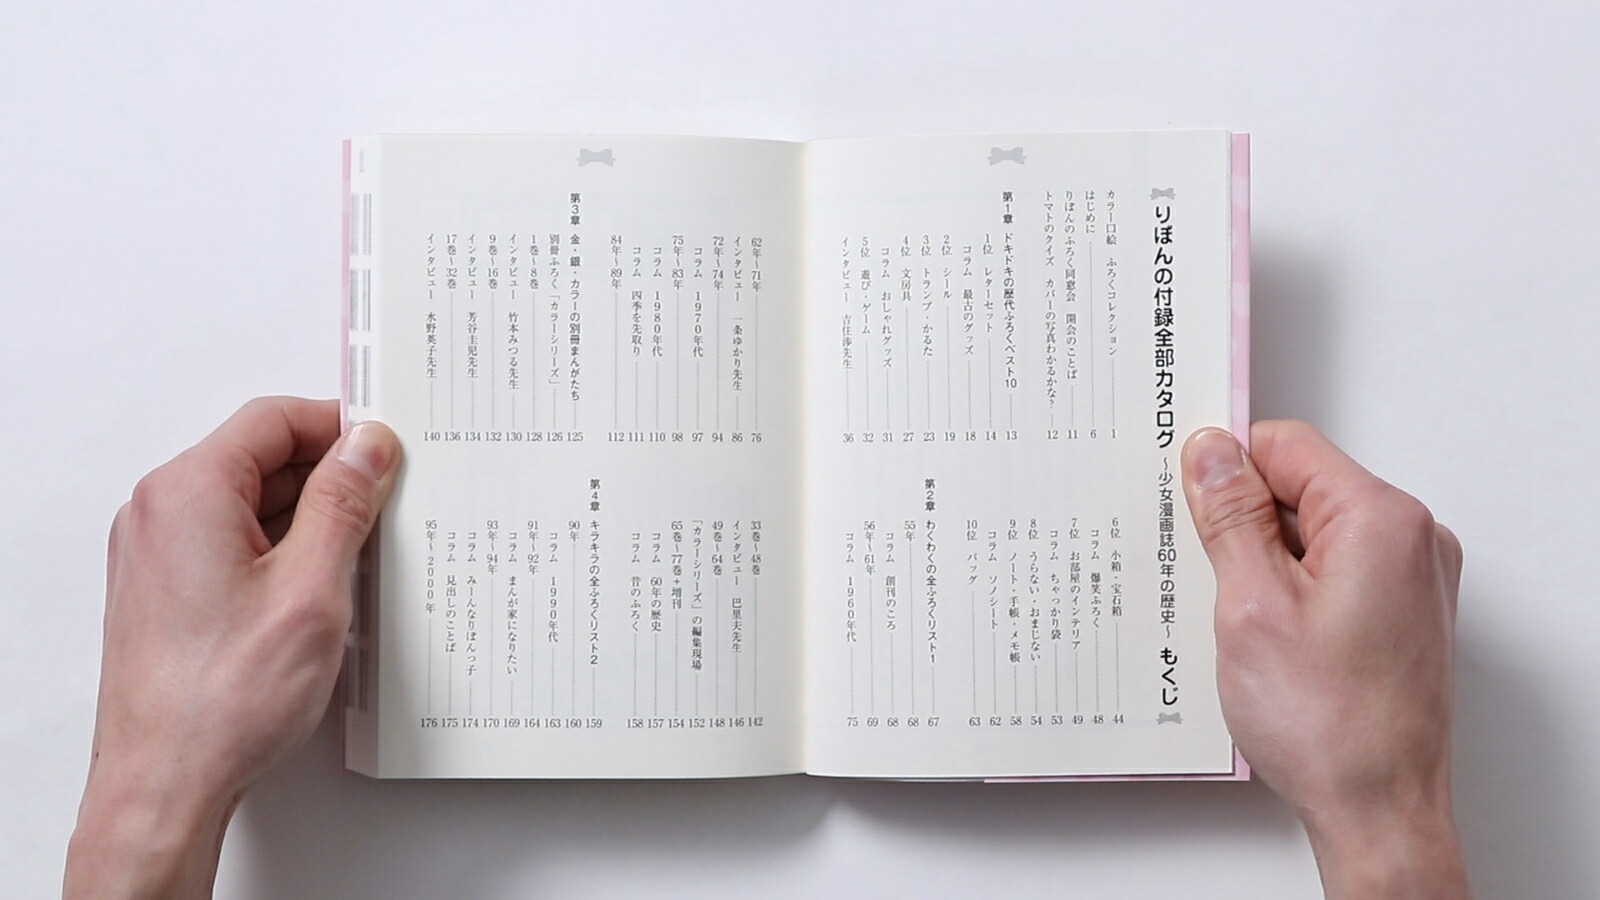 りぼんの付録全部カタログ ～少女漫画誌60年の歴史～ もくじ
カラー口絵 ふろくコレクション 1
はじめに 6
りぼんのふろく同窓会 開会のことば 11
トマトのクイズ カバーの写真わかるかな? 12
第1章 ドキドキの歴代ふろくベスト10 13
1位 レターセット 14
コラム 最古のグッズ 18
2位 シール 19
3位 トランプ・かるた 23
4位 文房具 27
コラム おしゃれグッズ 31
5位 遊び・ゲーム 32
インタビュー 吉住渉先生 36
6位 小箱・宝石箱 44
コラム 爆笑ふろく 48
7位 お部屋のインテリア 49
コラム ちゃっかり袋 53
8位 うらない・おまじない 54
9位 ノート・手帳・メモ帳 58
コラム ソノシート 62
10位 バッグ 63
第2章 わくわくの全ふろくリスト1 67
55年 68
コラム 創刊のころ 68
56年～61年 69
コラム 1960年代 75
62年～71年 76
インタビュー 一条ゆかり先生 86
72年～74年 94
コラム 1970年代 97
75年～83年 98
コラム 1980年代 110
コラム 四季を先取り 111
84年～89年 112
第3章 金・銀・カラーの別冊まんがたち 125
別冊ふろく「カラーシリーズ」 126
1巻～8巻 128
インタビュー 竹本みつる先生 130
9巻～16巻 132
インタビュー 芳谷圭児先生 134
17巻～32巻 136
インタビュー 水野英子先生 140
33巻～48巻 142
インタビュー 巴里夫先生 146
49巻～64巻 148
「カラーシリーズ」の編集現場 152
65巻～77巻+増刊 154
コラム 60年の歴史 157
コラム 昔のふろく 158
第4章 キラキラの全ふろくリスト2 159
90年 160
コラム 1990年代 163
91年～92年 164
コラム まんが家になりたい 169
93年～94年 170
コラム みーんなりぼんっ子 174
コラム 見出しのことば 175
95年～2000年 176